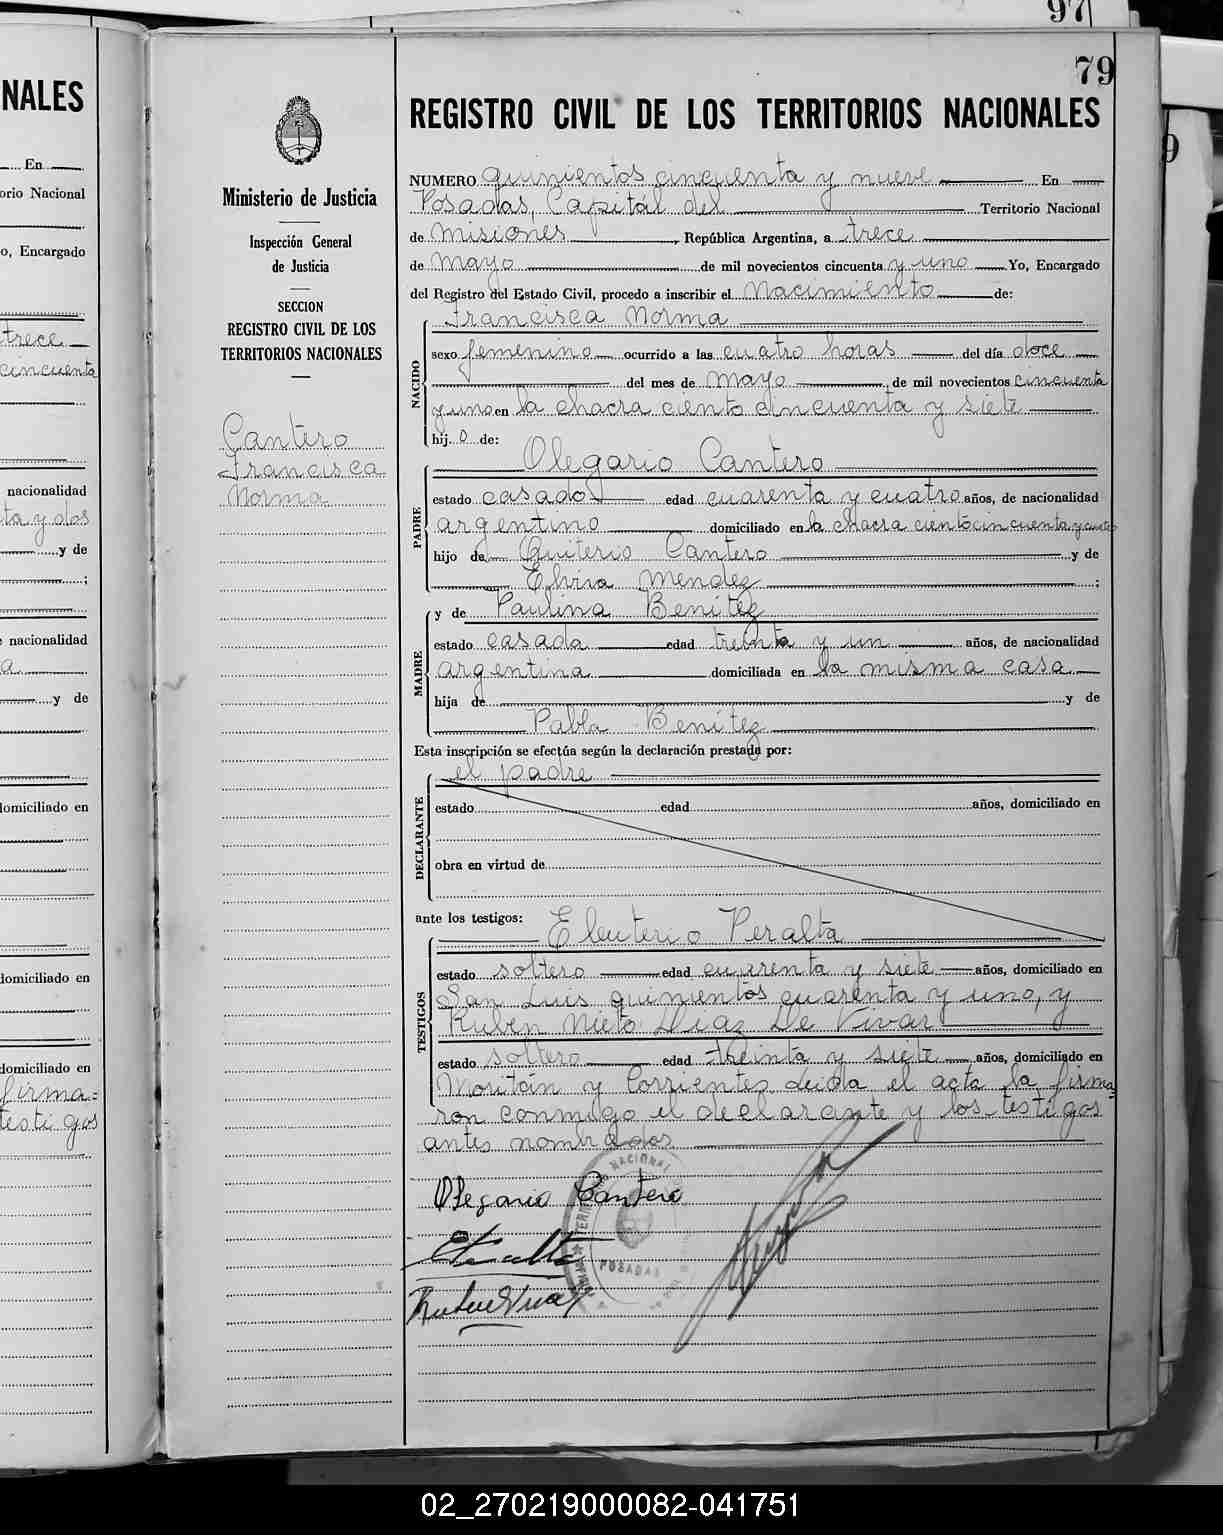 97
79
NALES
En
orio Nacional
o, Encargado
trece
cincuenta
nacionalidad
ta y dos
y de
;
nacionalidad
a
y de
domiciliado en
domiciliado en
domiciliado en
firma=
testigos
9
Ministerio de Justicia
Inspección General
de Justicia
SECCION
REGISTRO CIVIL DE LOS
TERRITORIOS NACIONALES
Cantero
Francisca
Norma
REGISTRO CIVIL DE LOS TERRITORIOS NACIONALES
NUMERO quinientos cincuenta y nueve En
Posadas, Capital del Territorio Nacional
de Misiones, República Argentina, a trece
de Mayo de mil novecientos cincuenta y uno Yo, Encargado
del Registro del Estado Civil, procedo a inscribir el Nacimiento de:
NACIDO
Francisca Norma
sexo femenino ocurrido a las cuatro horas del día doce
del mes de Mayo de mil novecientos cincuenta
y uno en la chacra ciento cincuenta y siete
hij.o de:
PADRE
Olegario Cantero
estado casado edad cuarenta y cuatro años, de nacionalidad
argentino domiciliado en la chacra ciento cincuenta y cuatro
hijo de Quiterio Cantero y de
Elvira Mendez ;
MADRE
y de Paulina Benitez
estado casada edad treinta y un años, de nacionalidad
argentina domiciliada en la misma casa
hija de y de
Pabla Benitez
Esta inscripción se efectúa según la declaración prestada por:
DECLARANTE
el padre
estado edad años, domiciliado en
obra en virtud de
ante los testigos:
TESTIGOS
Eleuterio Peralta
estado soltero edad cuarenta y siete años, domiciliado en
San Luis quinientos cuarenta y uno, y
Ruben Nieto Diaz De Vivar
estado soltero edad treinta y siete años, domiciliado en
Moritán y Corrientes Leida el acta la firma=
ron conmigo el declarante y los testigos
antes nombrados
Olegario Cantero
NACIONAL
POSADAS
02_270219000082-041751